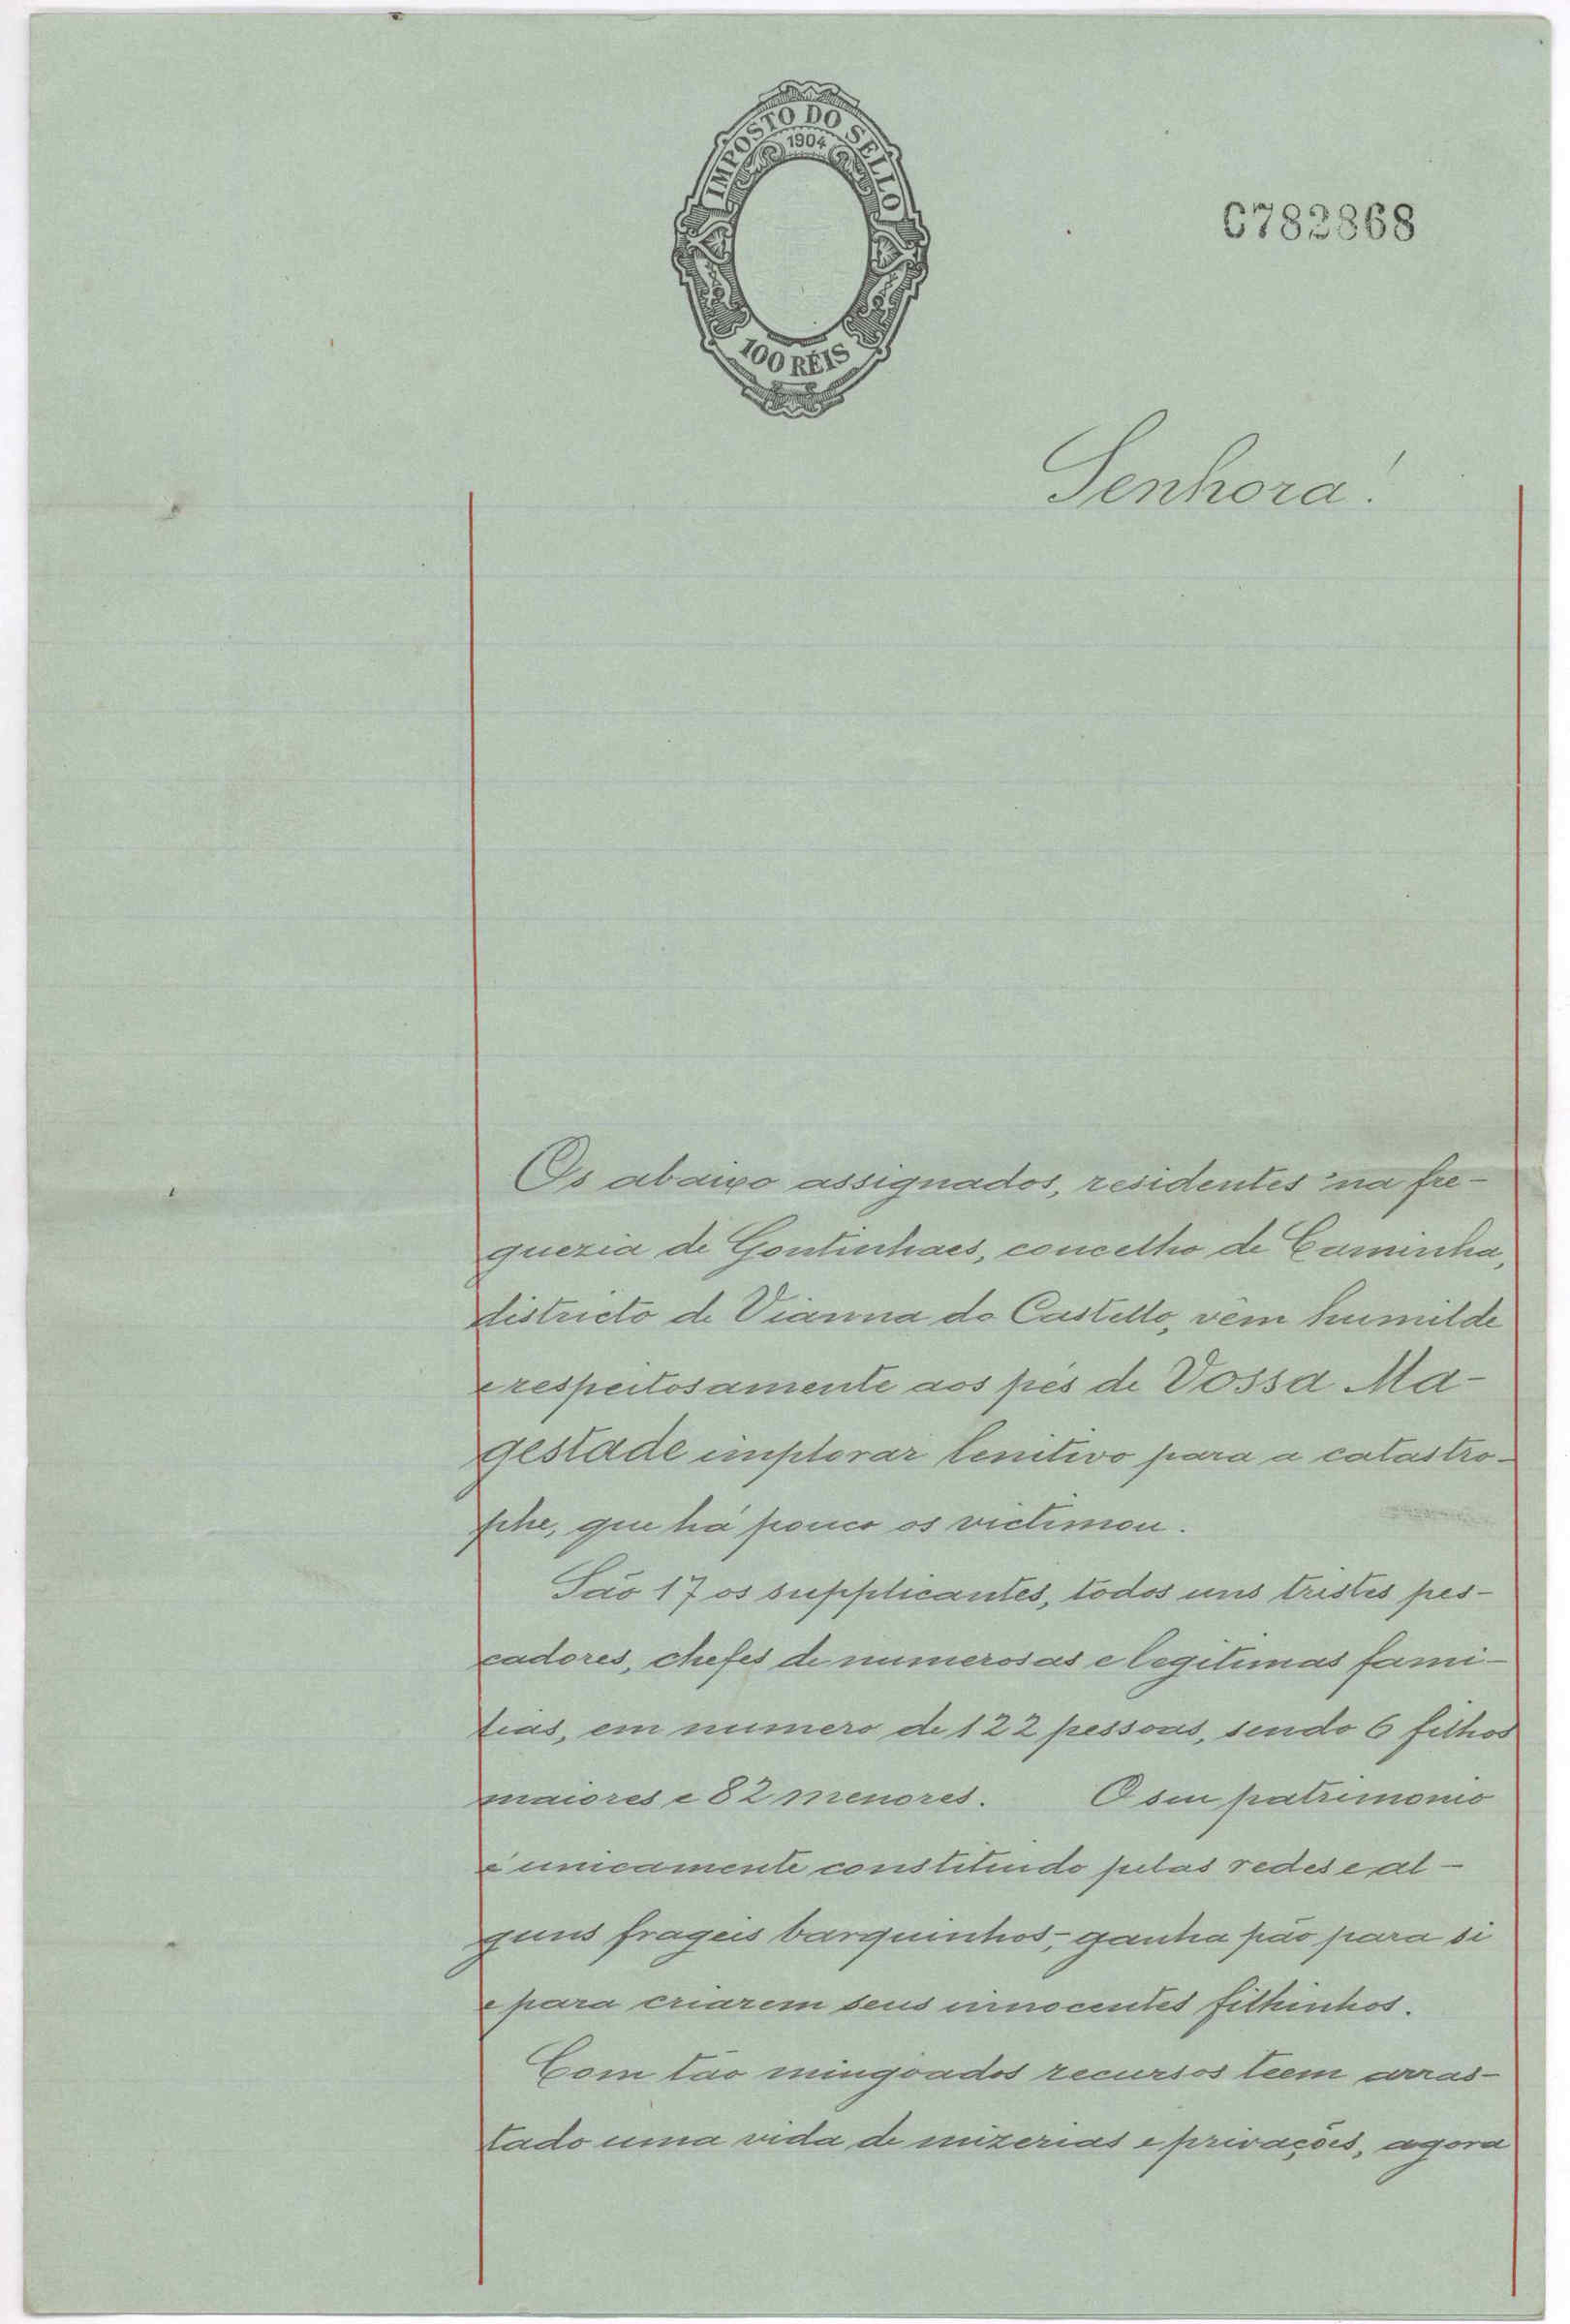 IMPOSTO DO SELLO
1904
100 RÉIS
C782868
Senhora!
Os abaixo assignados, residentes na fre-
guezia de Gontinhaes, concelho de Caminha,
districto de Vianna do Castello, vêm humilde
e respeitosamente aos pés de Vossa Ma-
gestade implorar lenitivo para a catastro-
phe, que há pouco os victimou.
São 17 os supplicantes, todos uns tristes pes-
cadores, chefes de numerosas e legitimas fami-
lias, em numero de 122 pessoas, sendo 6 filhos
maiores e 82 menores. O seu patrimonio
é unicamente constituido pelas redes e al-
guns frageis barquinhos, ganha pão para si
e para criarem seus innocentes filhinhos.
Com tão mingoados recursos teem arras-
tado uma vida de mizerias e privações, agora